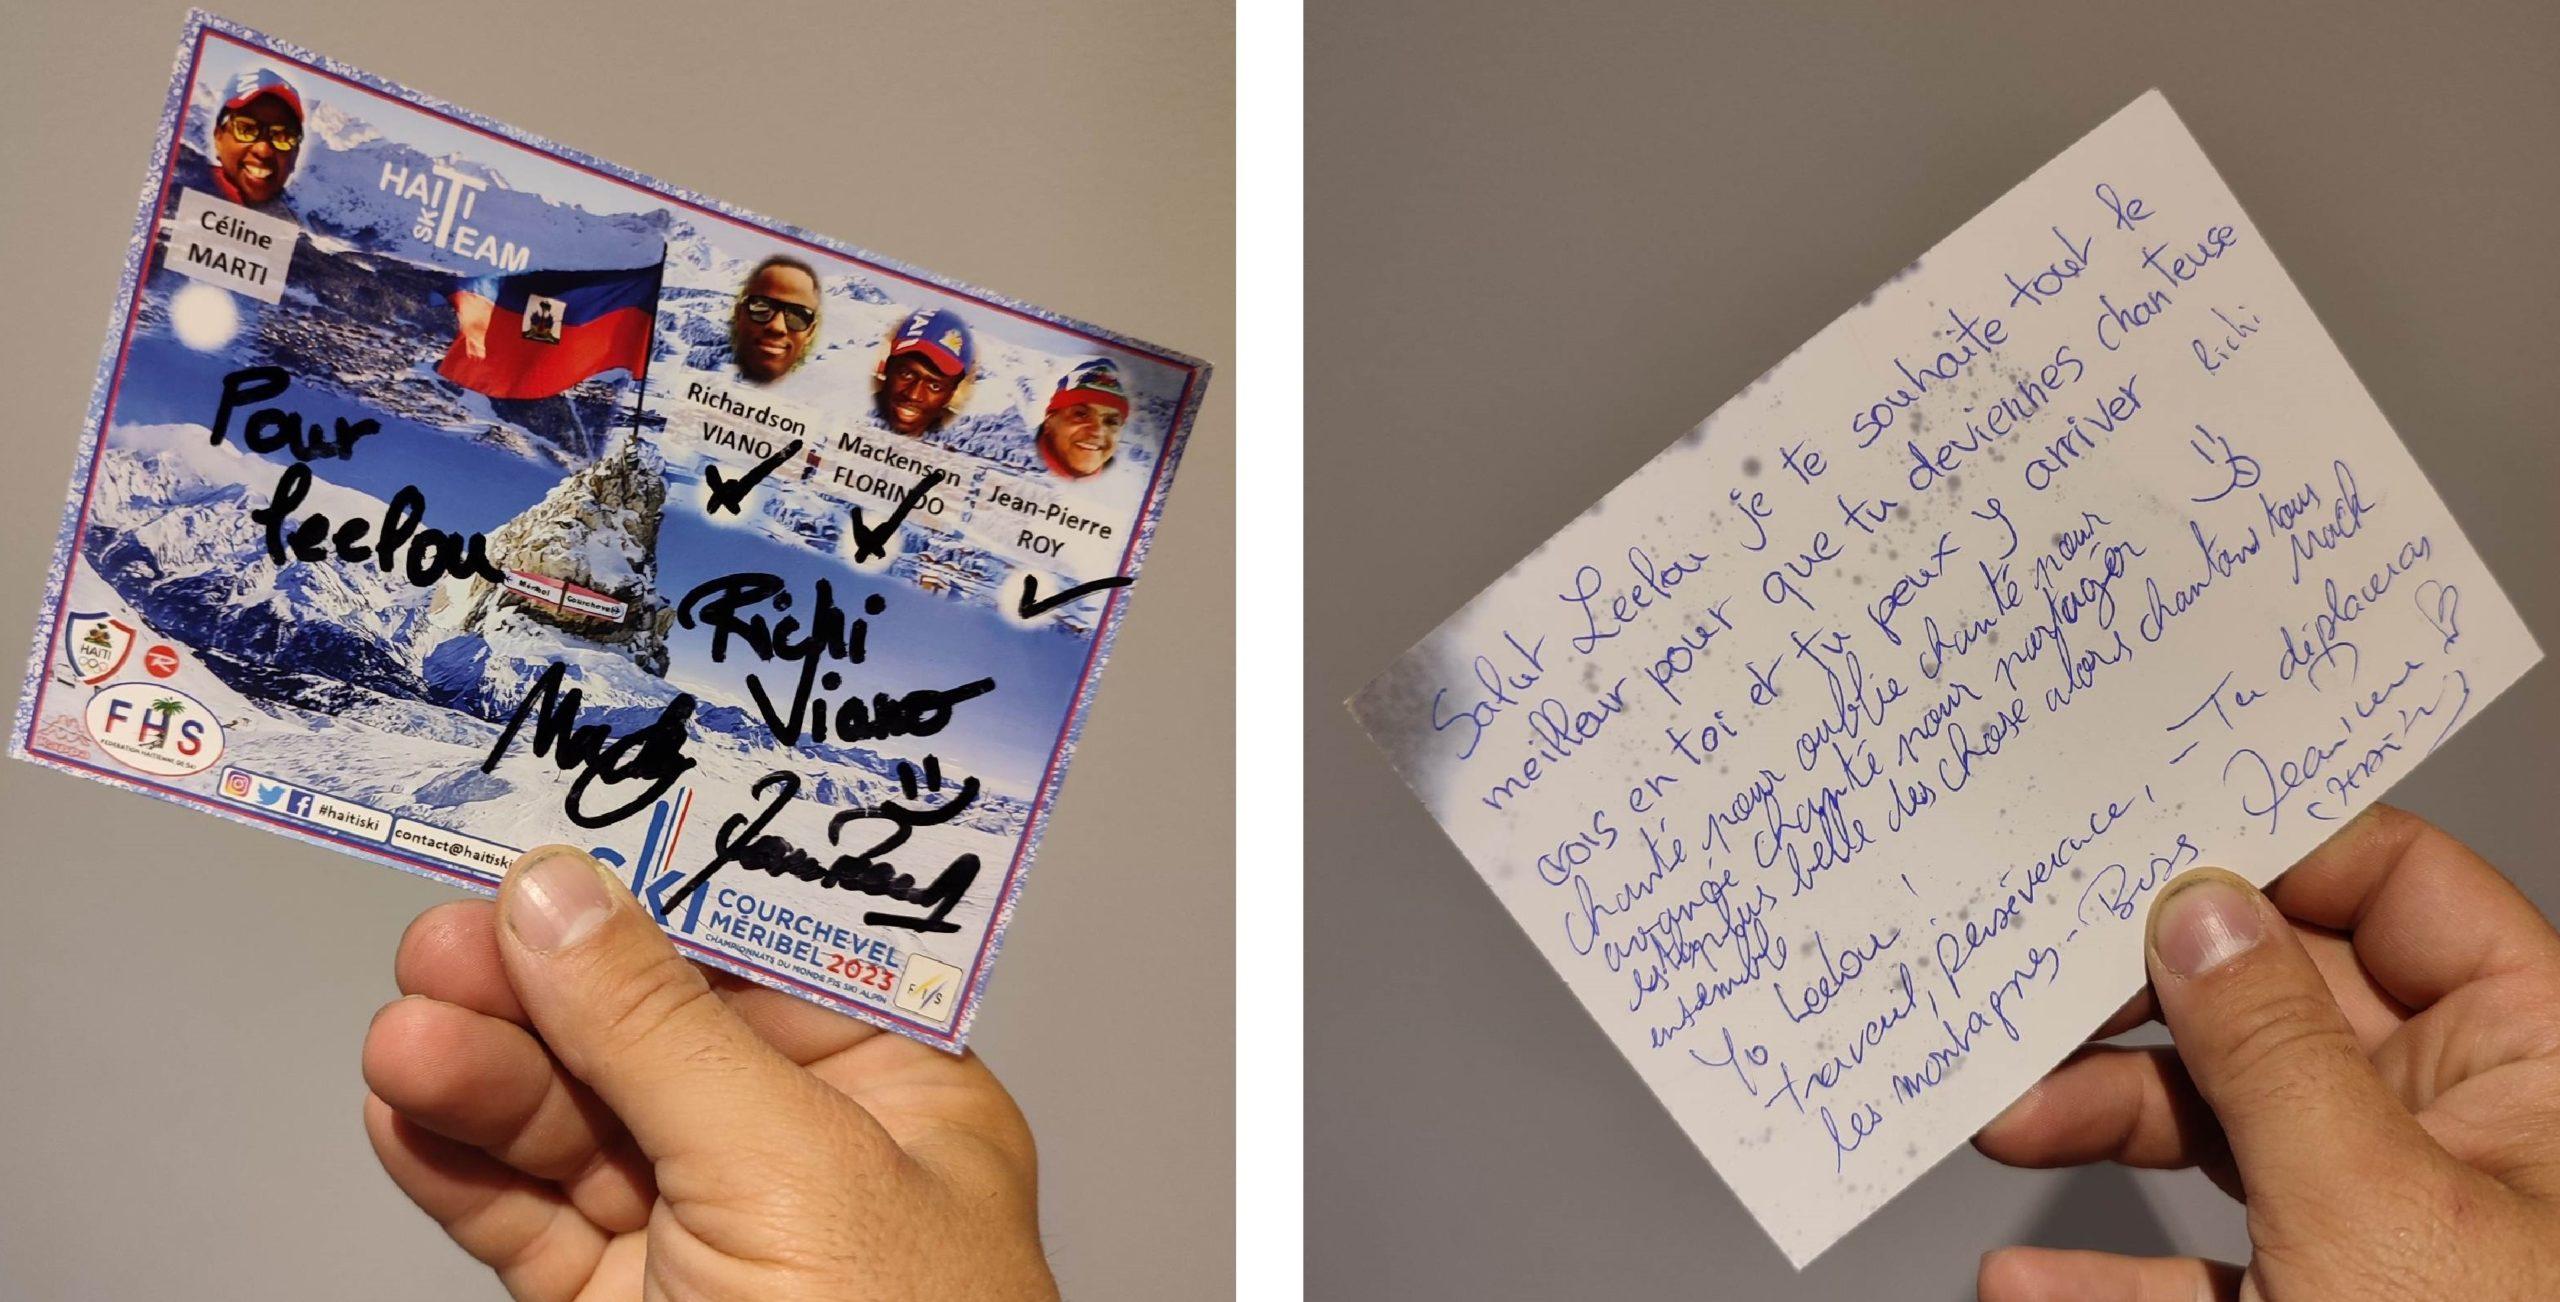 Céline
MARTI
HAITI
SKI TEAM
Richardson
VIANO
Mackenson
FLORINDO
Jean-Pierre
ROY
Pour
Leelou
Méribel
Courchevel
Richi
Viano
Mack
HAITI
R
FHS
FEDERATION HAITIENNE DE SKI
#haitiski
contact@haitiski
ski
COURCHEVEL
MÉRIBEL 2023
CHAMPIONNATS DU MONDE FIS SKI ALPIN
FIS
Salut Leelou je te souhaite tout le
meilleur pour que tu deviennes chanteuse
crois en toi et tu peux y arriver Richi
chanté pour oublie chanté pour
avancé chanté pour partager
est plus belle des chose alors chantons tous
ensemble Mack
Yo Leelou !
travail, persévérance, - Tu déplaceras
les montagnes - Bises